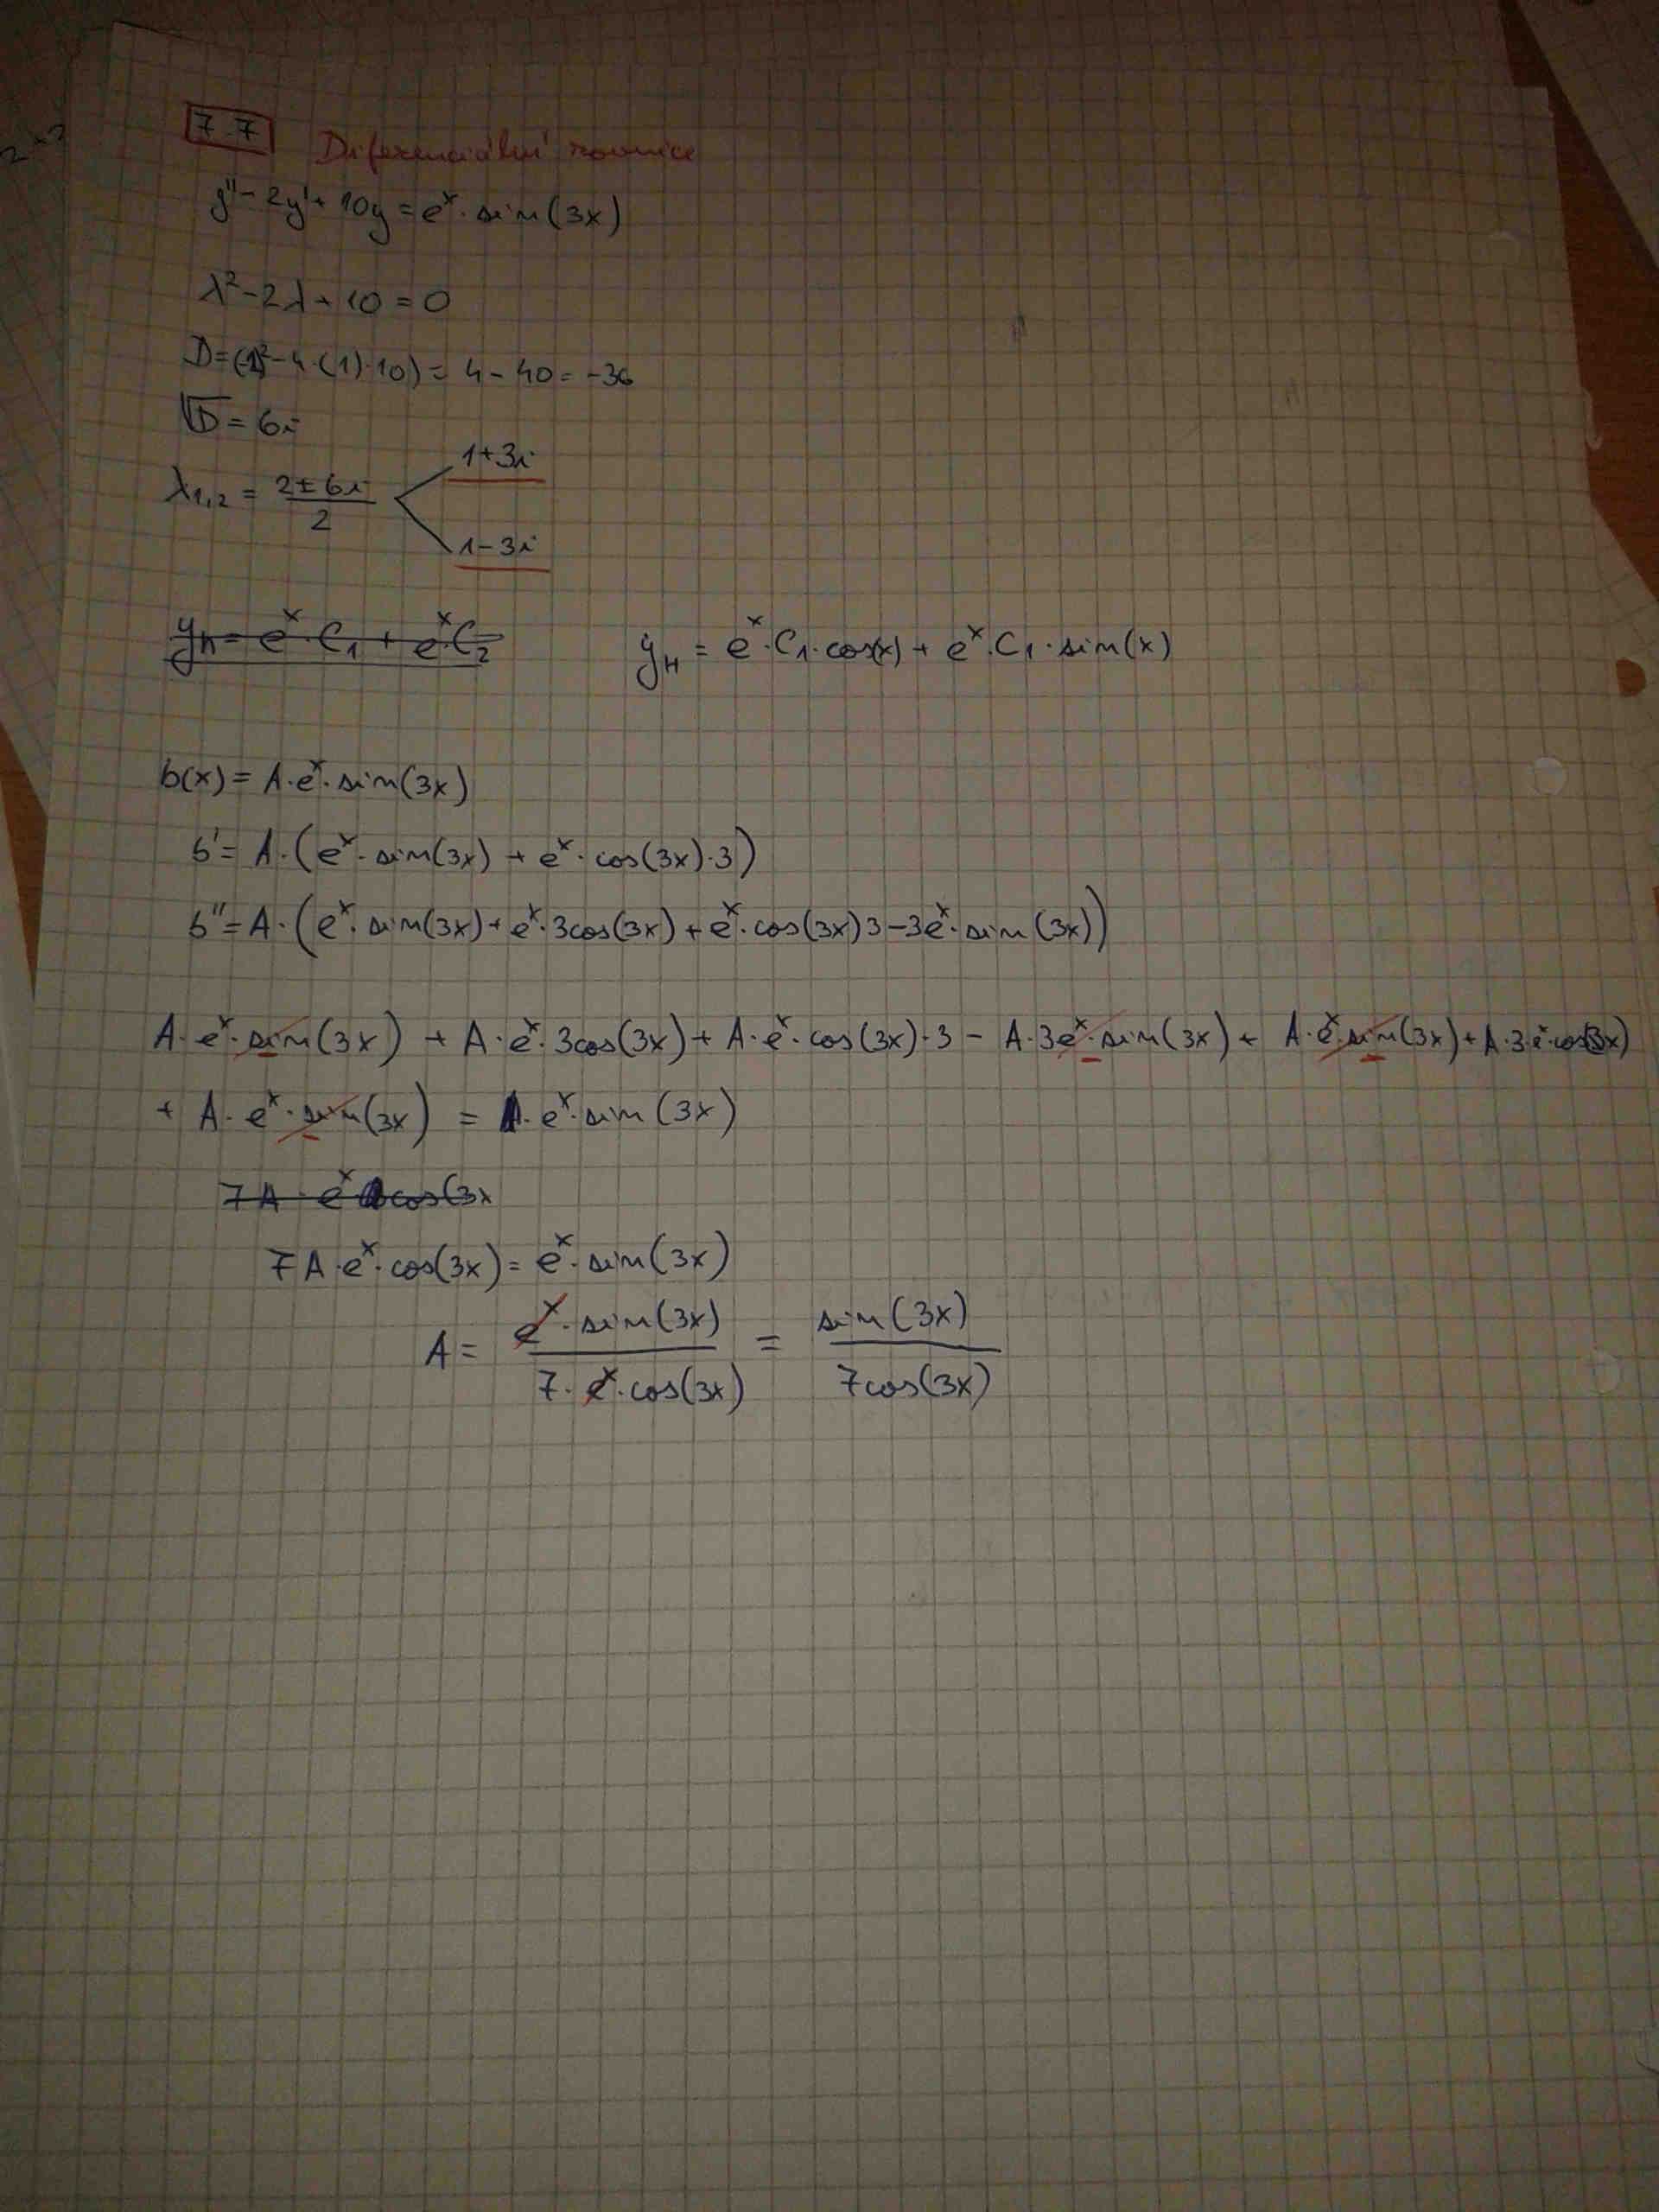 7.7 Diferenciální rovnice
y'' - 2y' + 10y = e^x · sin(3x)
λ² - 2λ + 10 = 0
D = (-2)² - 4·(1)·10) = 4 - 40 = -36
√D = 6i
1+3i
λ1,2 = (2 ± 6i)/2
1-3i
yH = e^x · C1 + e^x C2 yH = e^x · C1 · cos(x) + e^x · C1 · sin(x)
b(x) = A · e^x · sin(3x)
b' = A · (e^x · sin(3x) + e^x · cos(3x) · 3)
b'' = A · (e^x · sin(3x) + e^x · 3cos(3x) + e^x · cos(3x) 3 - 3e^x · sin(3x))
A · e^x · sin(3x) + A · e^x · 3cos(3x) + A · e^x · cos(3x) · 3 - A · 3e^x · sin(3x) + A · e^x · sin(3x) + A · 3 · e^x · cos(3x)
+ A · e^x · sin(3x) = A · e^x · sin(3x)
7A · e^x cos(3x
7A · e^x · cos(3x) = e^x · sin(3x)
A = (e^x · sin(3x))/(7 · e^x · cos(3x)) = sin(3x)/(7cos(3x))